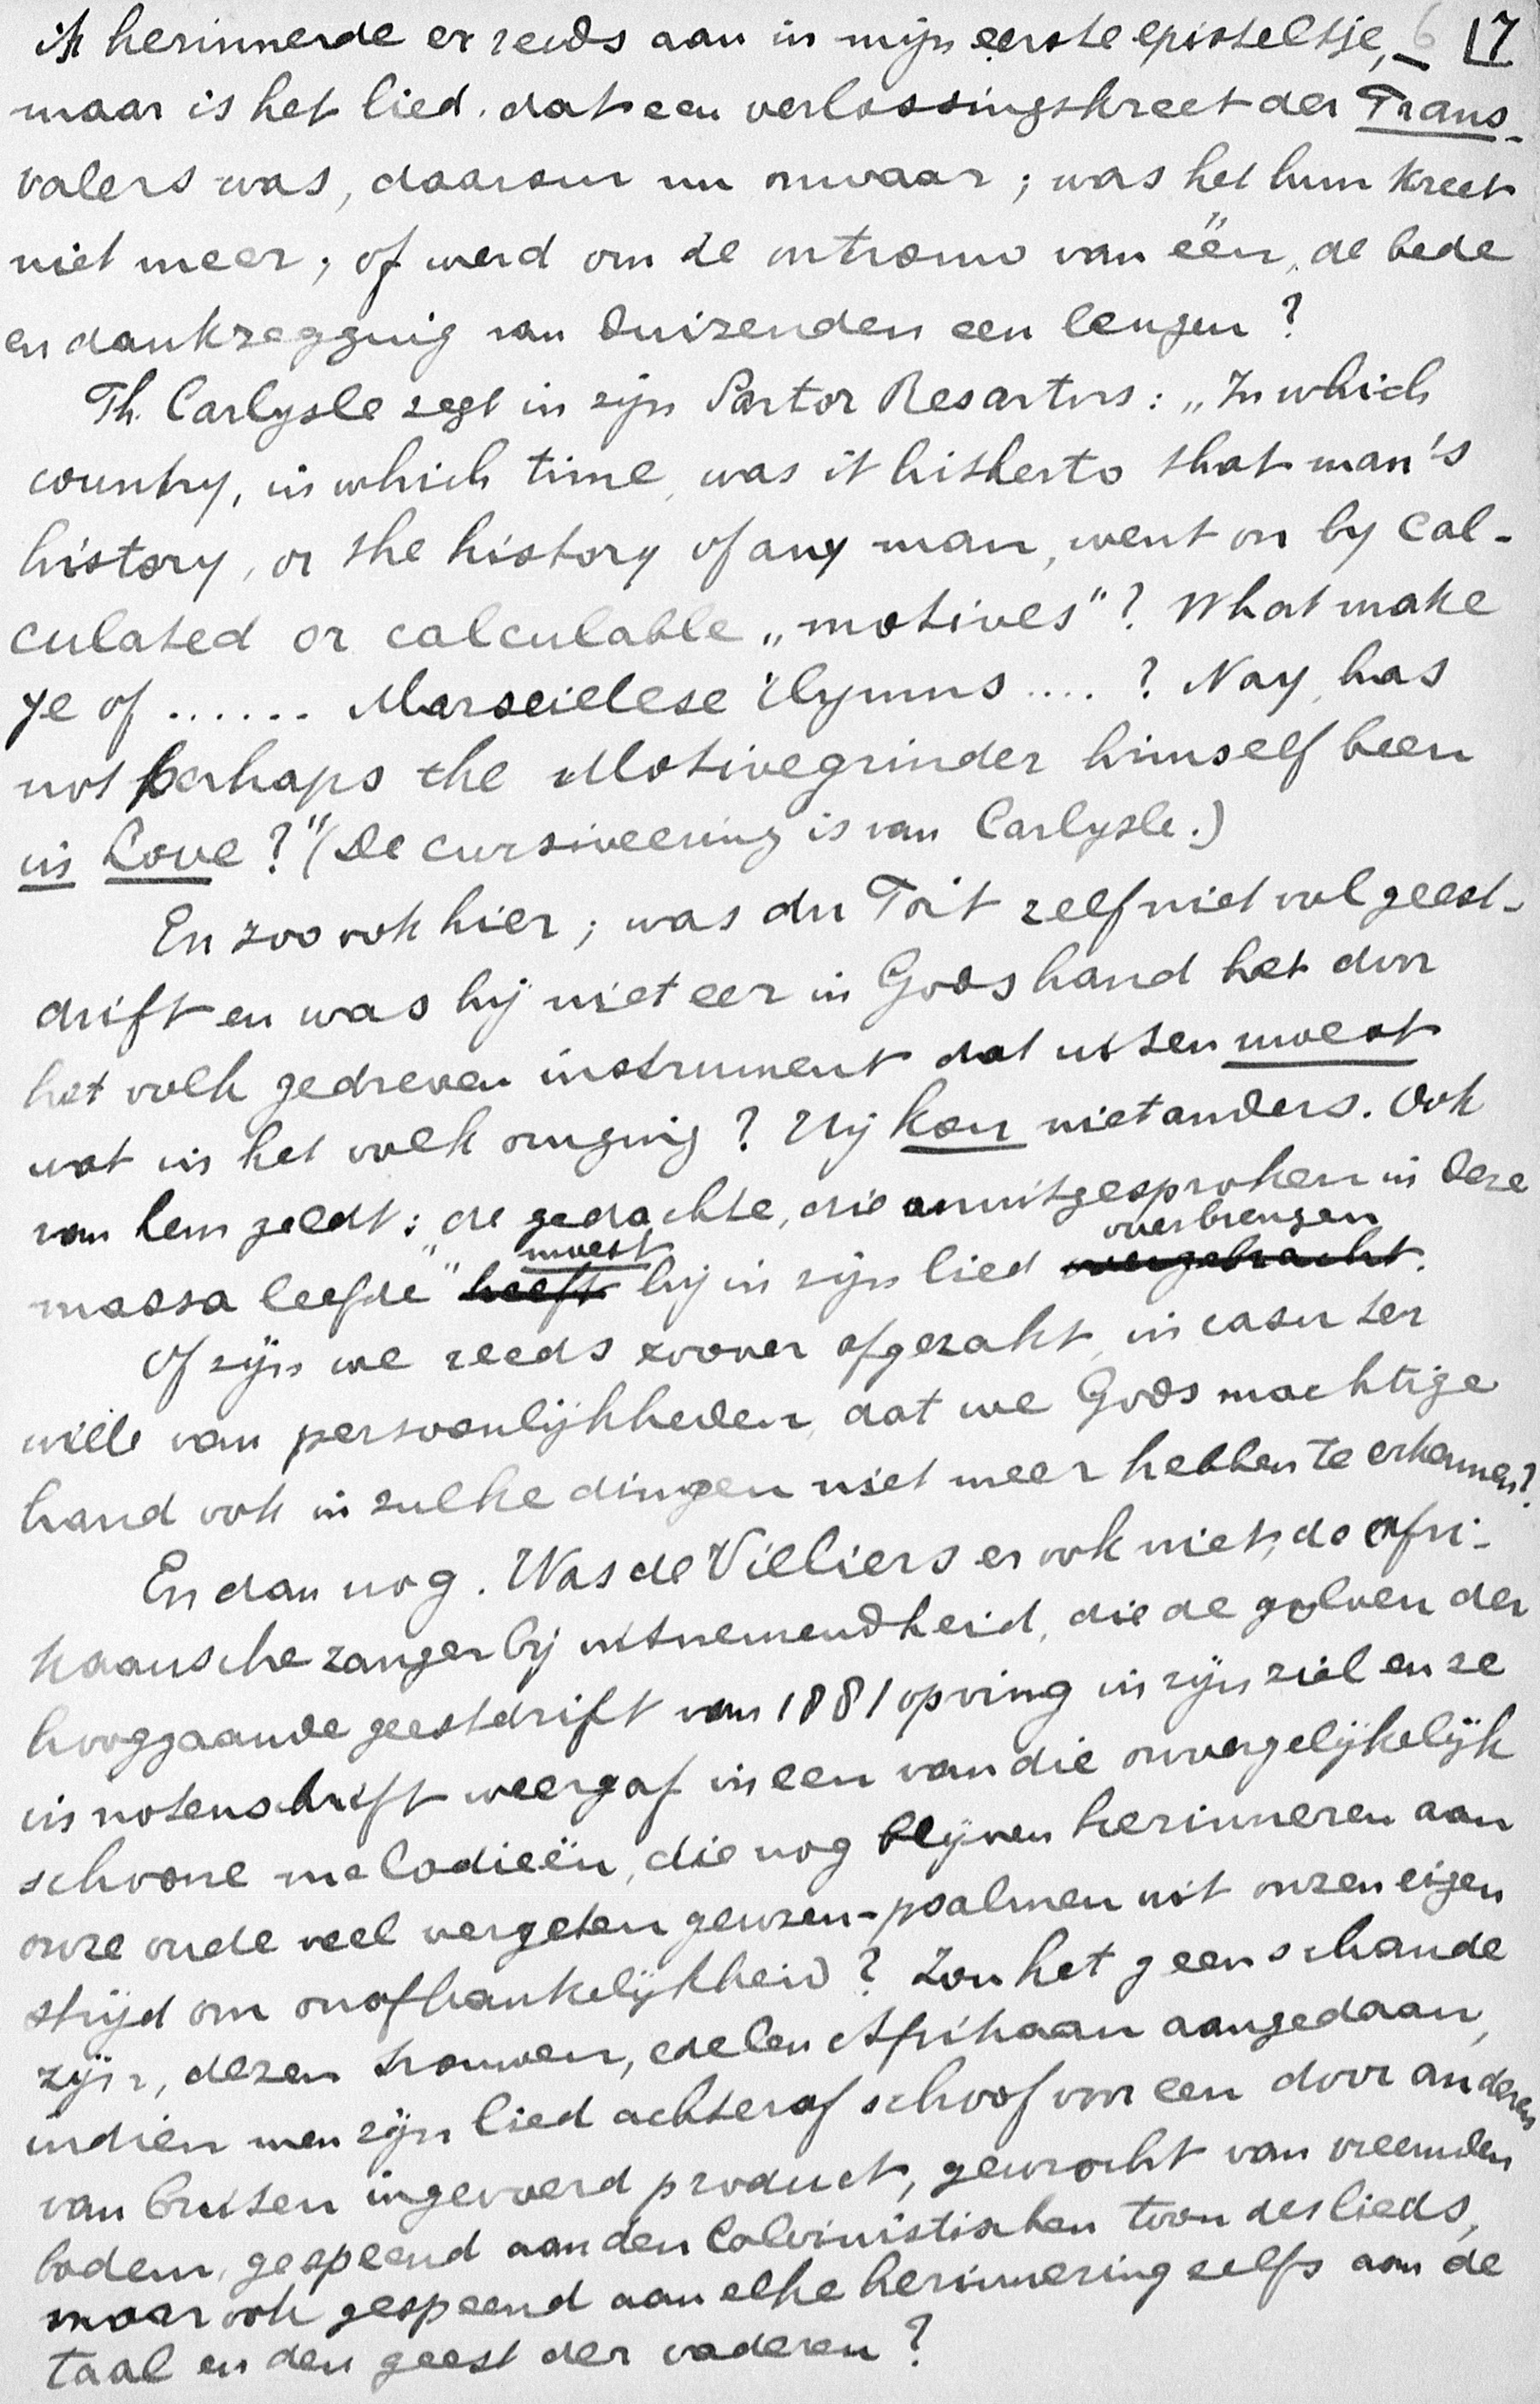 ik herinnerde er reeds aan in mijn eerste episteltje, 6 17
maar is het lied dat een verlossingskreet der Trans-
valers was, daarom nu onwaar; was het hun kreet
niet meer; of werd om de ontrouw van één, de bede
en dankzegging van duizenden een leugen?
Th. Carlysle zegt in zijn Sartor Resartus: „In which
country, in which time, was it hitherto that man's
history, or the history of any man, went on by cal-
culated or calculable „motives"? What make
ye of ...... Marseillese Hymns ....? Nay, has
not perhaps the Motivegrinder himself been
in Love?" (De cursiveering is van Carlysle.)
En zoo ook hier; was du Toit zelf niet vol geest-
drift en was hij niet eer in Gods hand het door
het volk gedreven instrument dat uiten moest
wat in het volk omging? Hij kon niet anders. Ook
van hem geldt: „de gedachte, die onuitgesproken in deze
massa leefde" heeft moest hij in zijn lied overgebracht overbrengen.
Of zijn we reeds zoover afgezakt, in casu ter
wille van persoonlijkheden, dat we Gods machtige
hand ook in zulke dingen niet meer hebben te erkennen?
En dan nog. Was de Villiers er ook niet, de Afri-
kaansche zanger bij uitnemendheid, die de golven der
hooggaande geestdrift van 1881 opving in zijn ziel en ze
in notenschrift weergaf in een van die onvergelijkelijk
schoone melodieën, die nog blijven herinneren aan
onze oude veel vergeten geuzen-psalmen uit onzen eigen
strijd om onafhankelijkheid? Zou het geen schande
zijn, dezen trouwen, edelen Afrikaan aangedaan,
indien men zijn lied achteraf schoof voor een door anderen
van buiten ingevoerd product, gewrocht van vreemden
bodem, gespeend aan den Calvinistischen toon des lieds,
maar ook gespeend aan elke herinnering zelfs aan de
taal en den geest der vaderen?